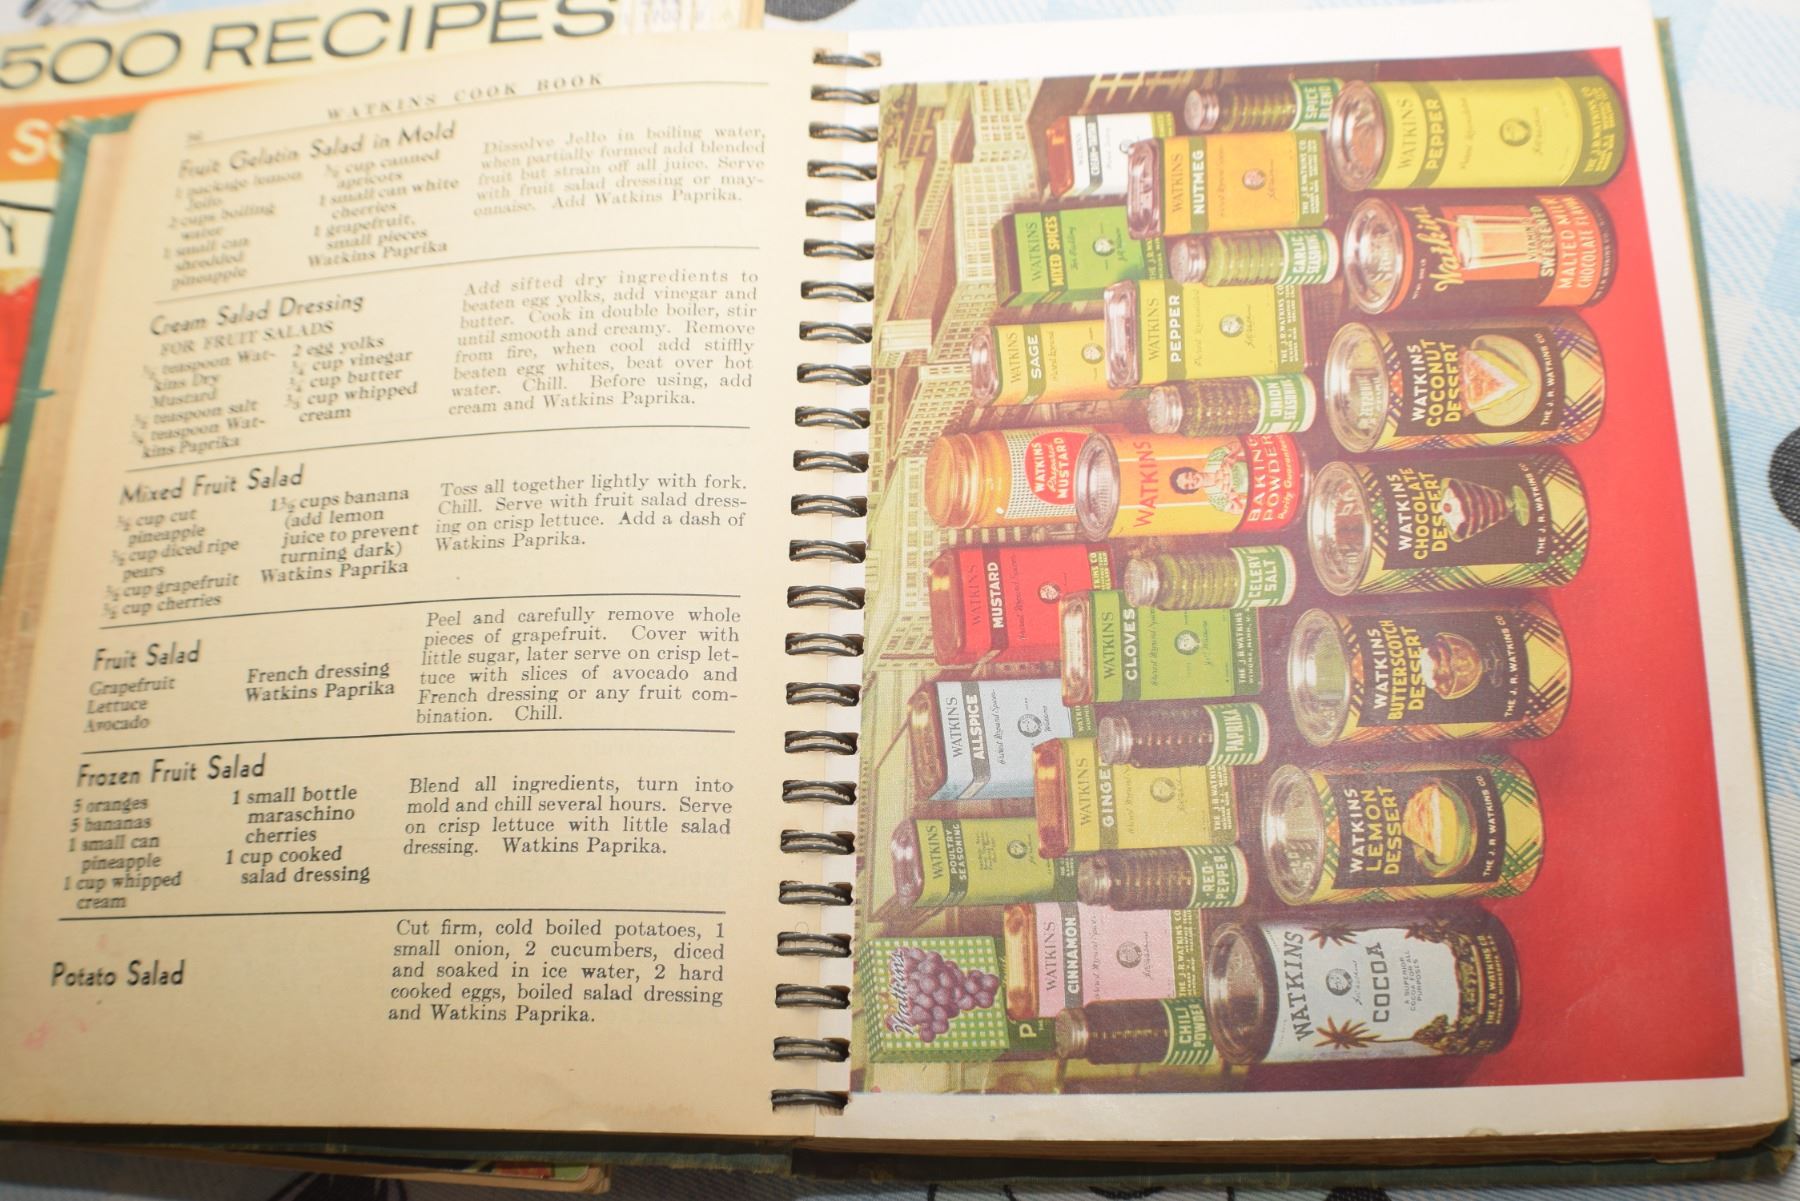 500 RECIPES
WATKINS COOK BOOK
Fruit Gelatin Salad in Mold
1 package lemon
Jello
2 cups boiling
water
1 small can
shredded
pineapple
½ cup canned
apricots
1 small can white
cherries
1 grapefruit,
small pieces
Watkins Paprika
Dissolve Jello in boiling water,
when partially formed add blended
fruit but strain off all juice. Serve
with fruit salad dressing or may-
onnaise. Add Watkins Paprika.
Cream Salad Dressing
FOR FRUIT SALADS
teaspoon Wat-
kins Dry
Mustard
½ teaspoon salt
¼ teaspoon Wat-
kins Paprika
2 egg yolks
¼ cup vinegar
¼ cup butter
cup whipped
cream
Add sifted dry ingredients to
beaten egg yolks, add vinegar and
butter. Cook in double boiler, stir
until smooth and creamy. Remove
from fire, when cool add stiffly
beaten egg whites, beat over hot
water. Chill. Before using, add
cream and Watkins Paprika.
Mixed Fruit Salad
½ cup cut
pineapple
½ cup diced ripe
pears
½ cup grapefruit
½ cup cherries
1½ cups banana
(add lemon
juice to prevent
turning dark)
Watkins Paprika
Toss all together lightly with fork.
Chill. Serve with fruit salad dress-
ing on crisp lettuce. Add a dash of
Watkins Paprika.
Fruit Salad
Grapefruit
Lettuce
Avocado
French dressing
Watkins Paprika
Peel and carefully remove whole
pieces of grapefruit. Cover with
little sugar, later serve on crisp let-
tuce with slices of avocado and
French dressing or any fruit com-
bination. Chill.
Frozen Fruit Salad
5 oranges
5 bananas
1 small can
pineapple
1 cup whipped
cream
1 small bottle
maraschino
cherries
1 cup cooked
salad dressing
Blend all ingredients, turn into
mold and chill several hours. Serve
on crisp lettuce with little salad
dressing. Watkins Paprika.
Potato Salad
Cut firm, cold boiled potatoes, 1
small onion, 2 cucumbers, diced
and soaked in ice water, 2 hard
cooked eggs, boiled salad dressing
and Watkins Paprika.
Watkins
WATKINS
POULTRY
SEASONING
WATKINS
ALLSPICE
WATKINS
MUSTARD
WATKINS
Prepared
MUSTARD
WATKINS
SAGE
WATKINS
MIXED SPICES
WATKINS
CREAM
WATKINS
CINNAMON
WATKINS
GINGER
WATKINS
CLOVES
WATKINS
BAKING
POWDER
Purity Guaranteed
WATKINS
PEPPER
WATKINS
NUTMEG
CHILI
POWDER
RED
PEPPER
PAPRIKA
CELERY
SALT
ONION
SEASONING
GARLIC
SEASONING
SPICE
BLEND
WATKINS
COCOA
A SUPERIOR
COCOA FOR ALL
PURPOSES
WATKINS
LEMON
DESSERT
THE J. R. WATKINS CO.
WATKINS
BUTTERSCOTCH
DESSERT
THE J. R. WATKINS CO.
WATKINS
CHOCOLATE
DESSERT
THE J. R. WATKINS CO.
WATKINS
COCONUT
DESSERT
THE J. R. WATKINS CO.
Watkins
VITAMINED
SWEETENED
MALTED MILK
CHOCOLATE FLAVOR
WATKINS
PEPPER
THE J. R. WATKINS CO.